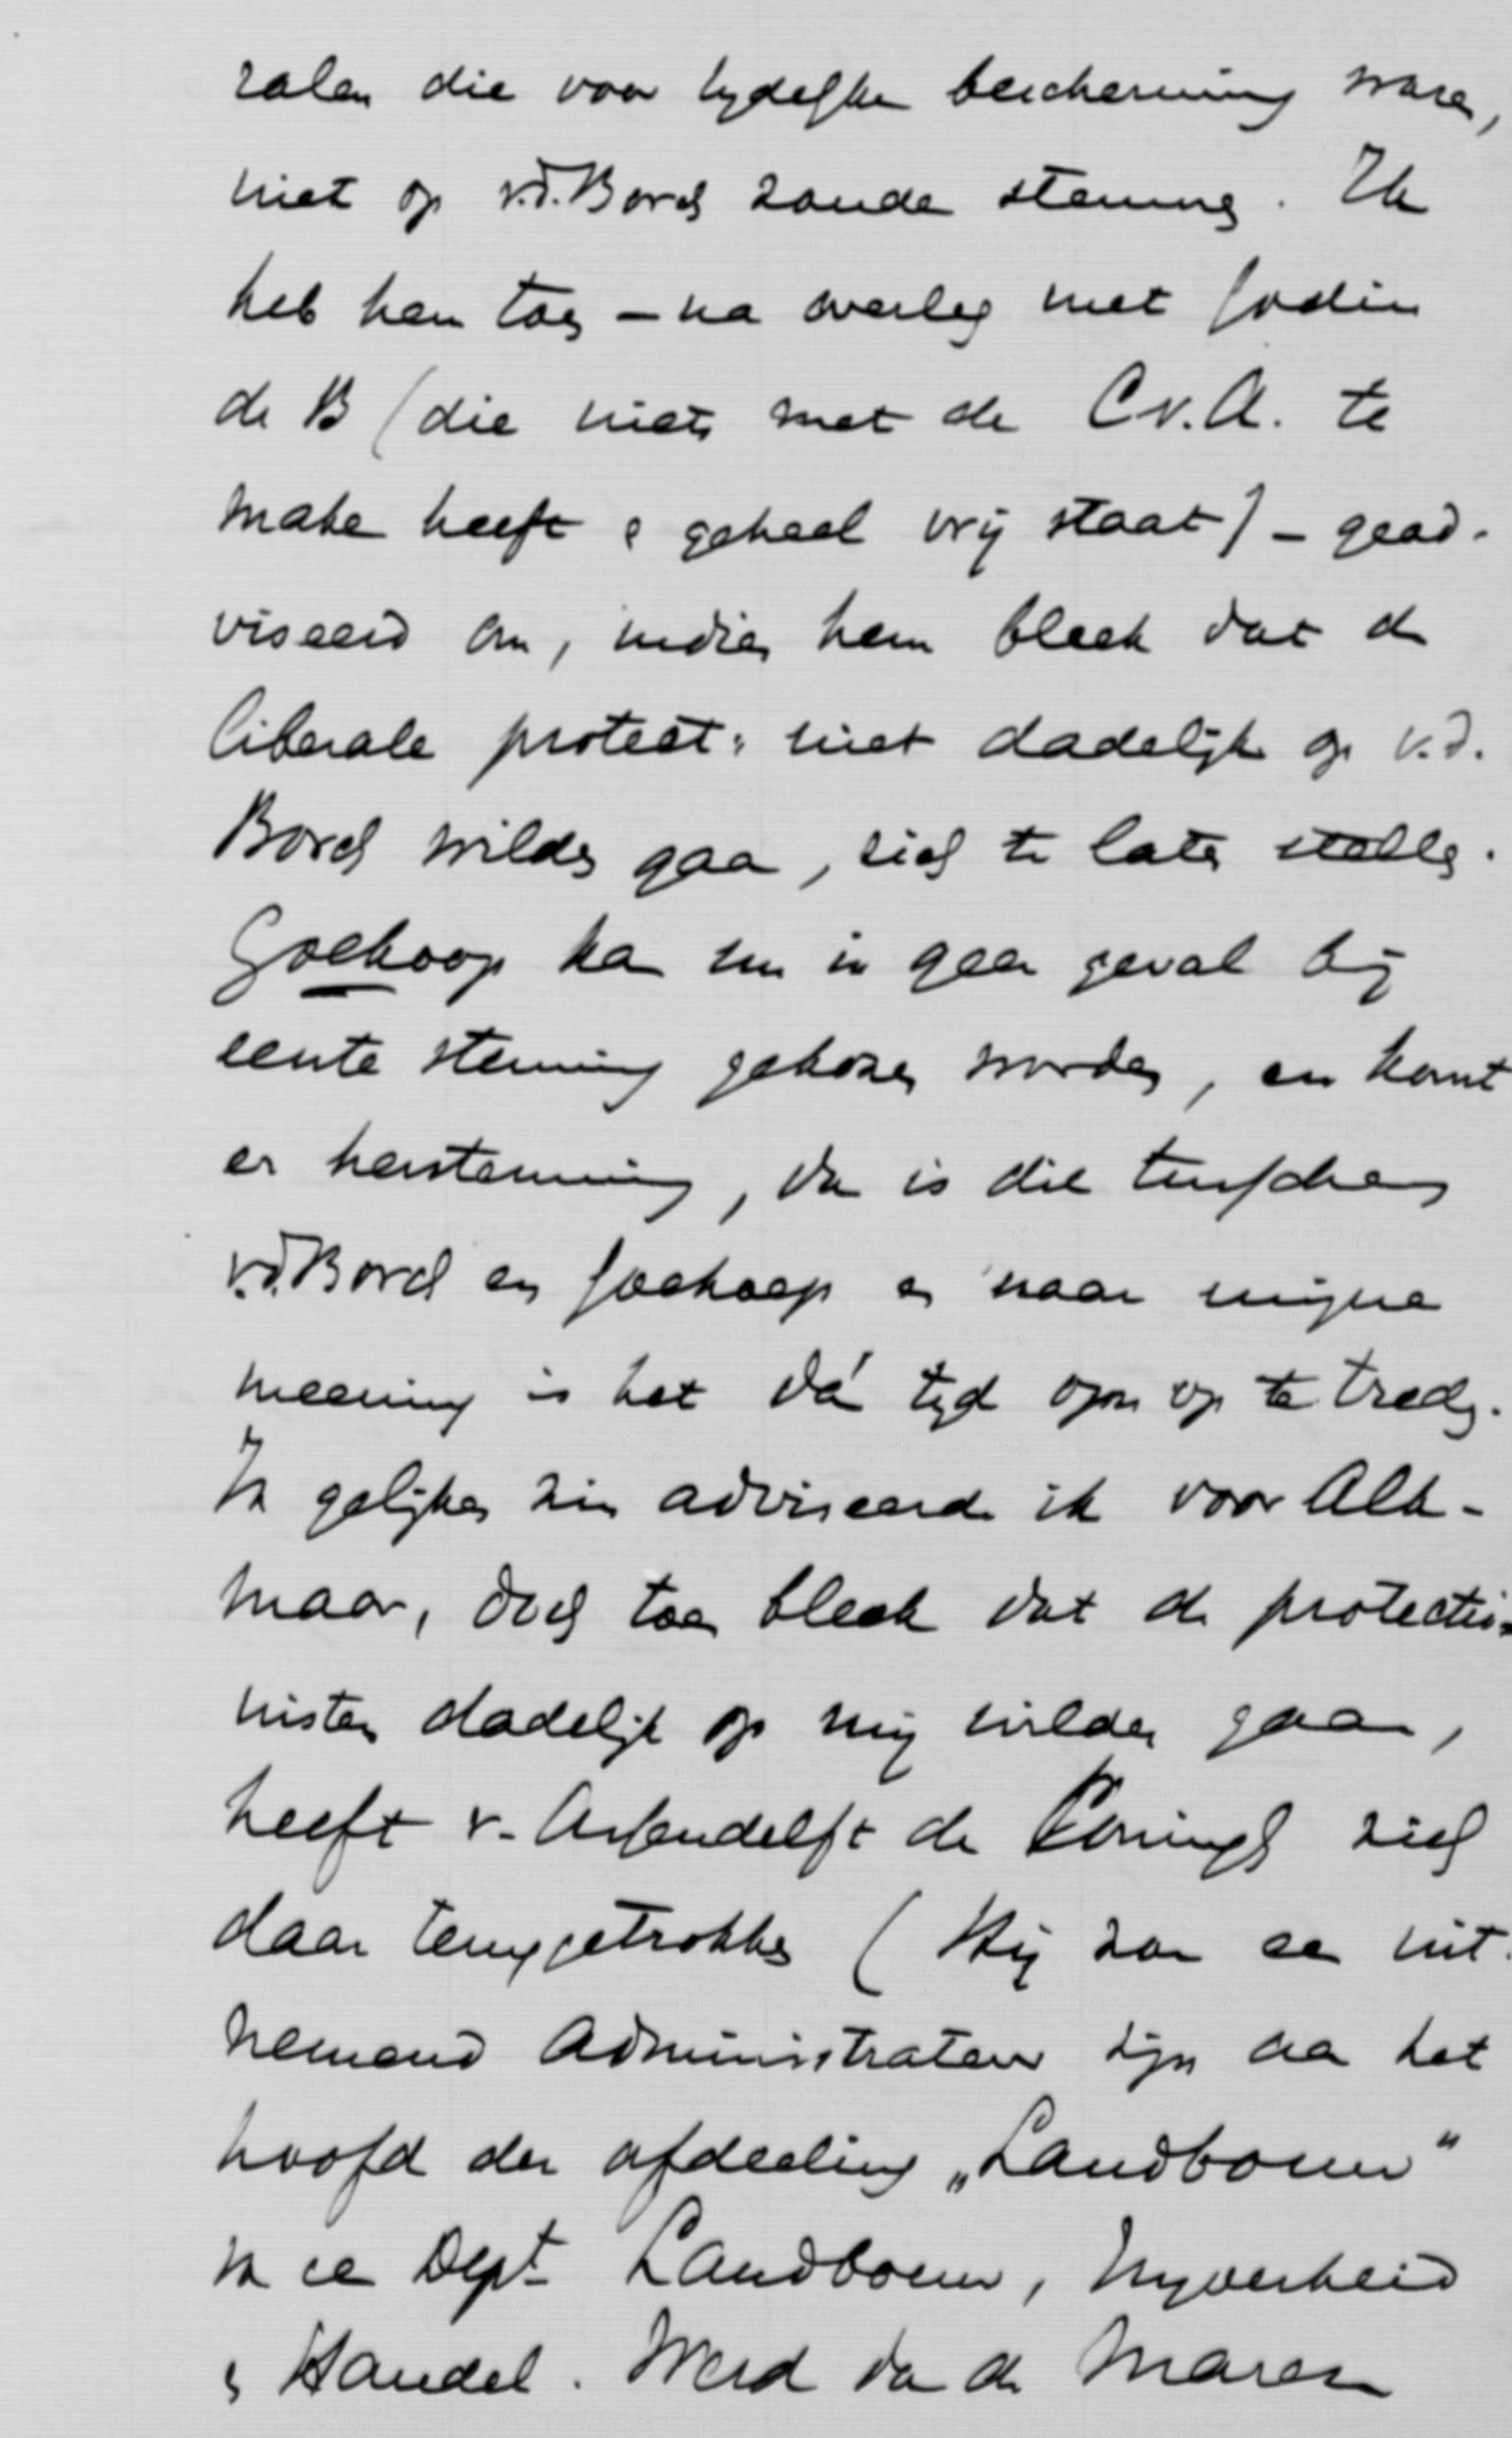 ralen die voor tydelyke bescherming waren,
niet op v.d. Borch zouden stemmen. Ik
heb hem toen – na overleg met Godin
de B (die niets met de C.v.A. te
maken heeft & geheel vrij staat) – gead-
viseerd om, indien hem bleek dat de
liberale protect: niet dadelijk op v.d.
Borch wilden gaan, zich te laten stellen.
Goekoop kan nu in geen geval bij
eerste stemming gekozen worden, en komt
er herstemming, dan is die tusschen
v.d. Borch en Goekoop en naar mijne
meening is het dán tyd om op te treden.
In gelijken zin adviseerde ik voor Alk-
maar, doch toen bleek dat de protectio-
nisten dadelijk op mij wilden gaan,
heeft v. Assendelft de Coningh zich
daar teruggetrokken (Hij zou een uit-
nemend administrateur zijn aan het
hoofd der afdeeling „Landbouw"
in een Dept Landbouw, Nyverheid
& Handel. Werd dan de Marez